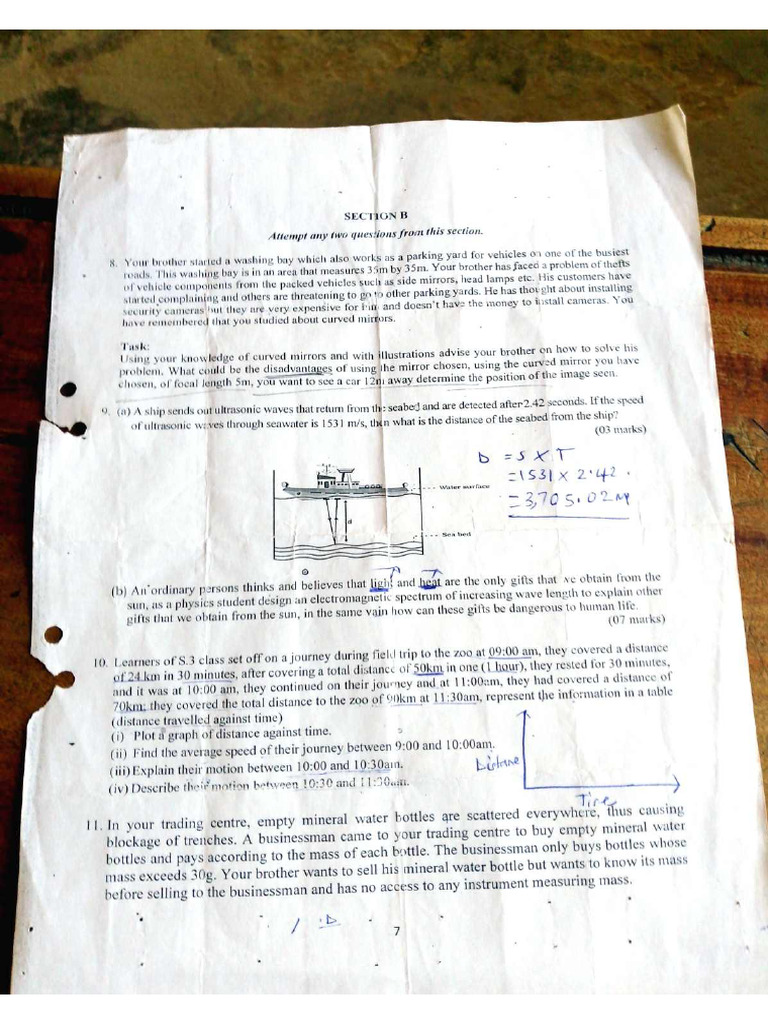 SECTION B
Attempt any two questions from this section.
8. Your brother started a washing bay which also works as a parking yard for vehicles on one of the busiest
roads. This washing bay is in an area that measures 35m by 35m. Your brother has faced a problem of thefts
of vehicle components from the packed vehicles such as side mirrors, head lamps etc. His customers have
started complaining and others are threatening to go to other parking yards. He has thought about installing
security cameras but they are very expensive for him and doesn't have the money to install cameras. You
have remembered that you studied about curved mirrors.
Task:
Using your knowledge of curved mirrors and with illustrations advise your brother on how to solve his
problem. What could be the disadvantages of using the mirror chosen, using the curved mirror you have
chosen, of focal length 5m, you want to see a car 12m away determine the position of the image seen.
9. (a) A ship sends out ultrasonic waves that return from the seabed and are detected after 2.42 seconds. If the speed
of ultrasonic waves through seawater is 1531 m/s, then what is the distance of the seabed from the ship?
(03 marks)
D = S X T
= 1531 X 2.42.
= 3,705.02M
Water surface
d
Sea bed
(b) An ordinary persons thinks and believes that light and heat are the only gifts that we obtain from the
sun, as a physics student design an electromagnetic spectrum of increasing wave length to explain other
gifts that we obtain from the sun, in the same vain how can these gifts be dangerous to human life.
(07 marks)
10. Learners of S.3 class set off on a journey during field trip to the zoo at 09:00 am, they covered a distance
of 24 km in 30 minutes, after covering a total distance of 50km in one (1 hour), they rested for 30 minutes,
and it was at 10:00 am, they continued on their journey and at 11:00am, they had covered a distance of
70km; they covered the total distance to the zoo of 90km at 11:30am, represent the information in a table
(distance travelled against time)
(i) Plot a graph of distance against time.
(ii) Find the average speed of their journey between 9:00 and 10:00am.
(iii) Explain their motion between 10:00 and 10:30am.
(iv) Describe their motion between 10:30 and 11:30am.
Distane
Time
11. In your trading centre, empty mineral water bottles are scattered everywhere, thus causing
blockage of trenches. A businessman came to your trading centre to buy empty mineral water
bottles and pays according to the mass of each bottle. The businessman only buys bottles whose
mass exceeds 30g. Your brother wants to sell his mineral water bottle but wants to know its mass
before selling to the businessman and has no access to any instrument measuring mass.
7